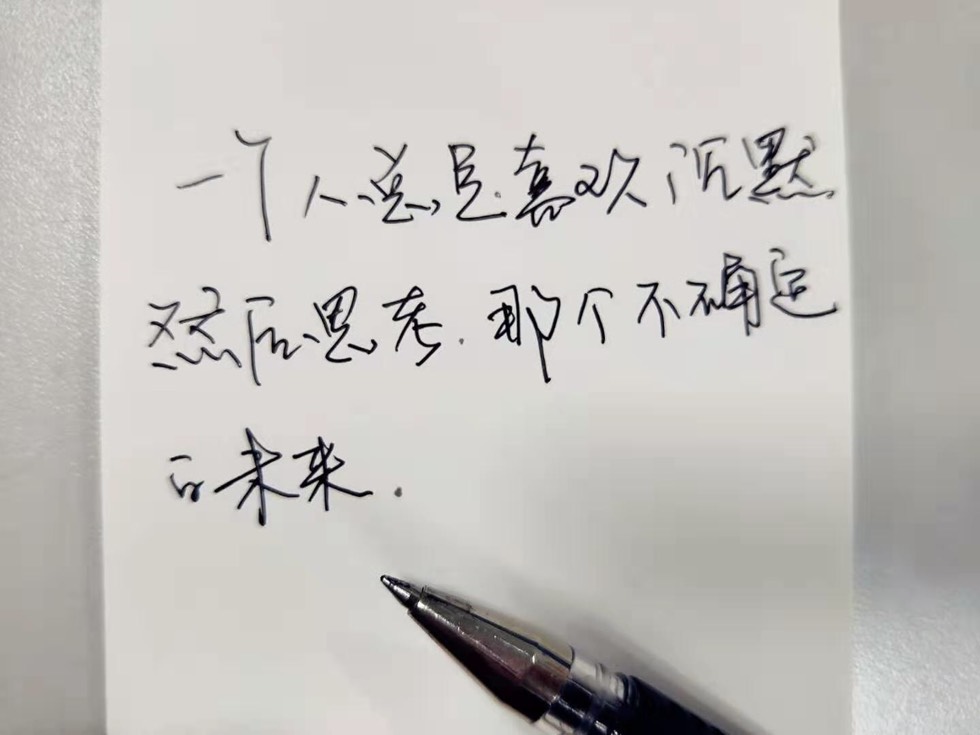 一个人总是喜欢沉默
然后思考.那个不确定
的未来.